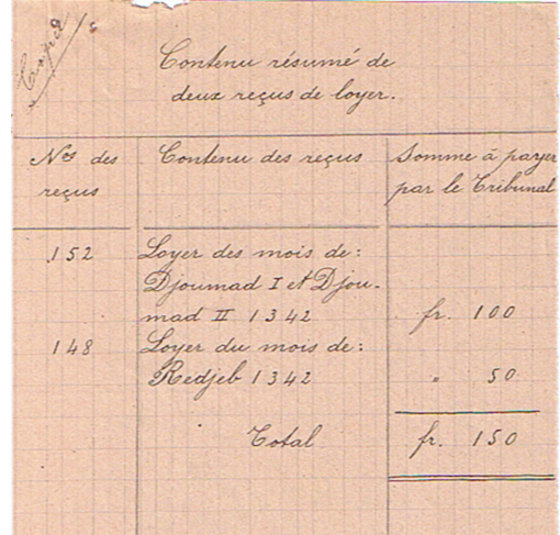 Copie
Contenu résumé de
deux reçus de loyer.
Nos des
reçus
Contenu des reçus
Somme à payer
par le Tribunal
152
Loyer des mois de:
Djoumad I et Djou-
mad II 1342
fr. 100
148
Loyer du mois de:
Redjeb 1342
" 50
Total
fr. 150